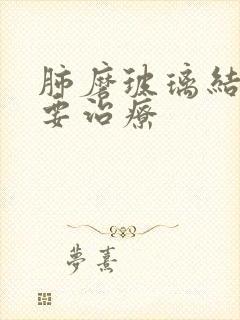 肺磨玻璃結
要治療
夢熹